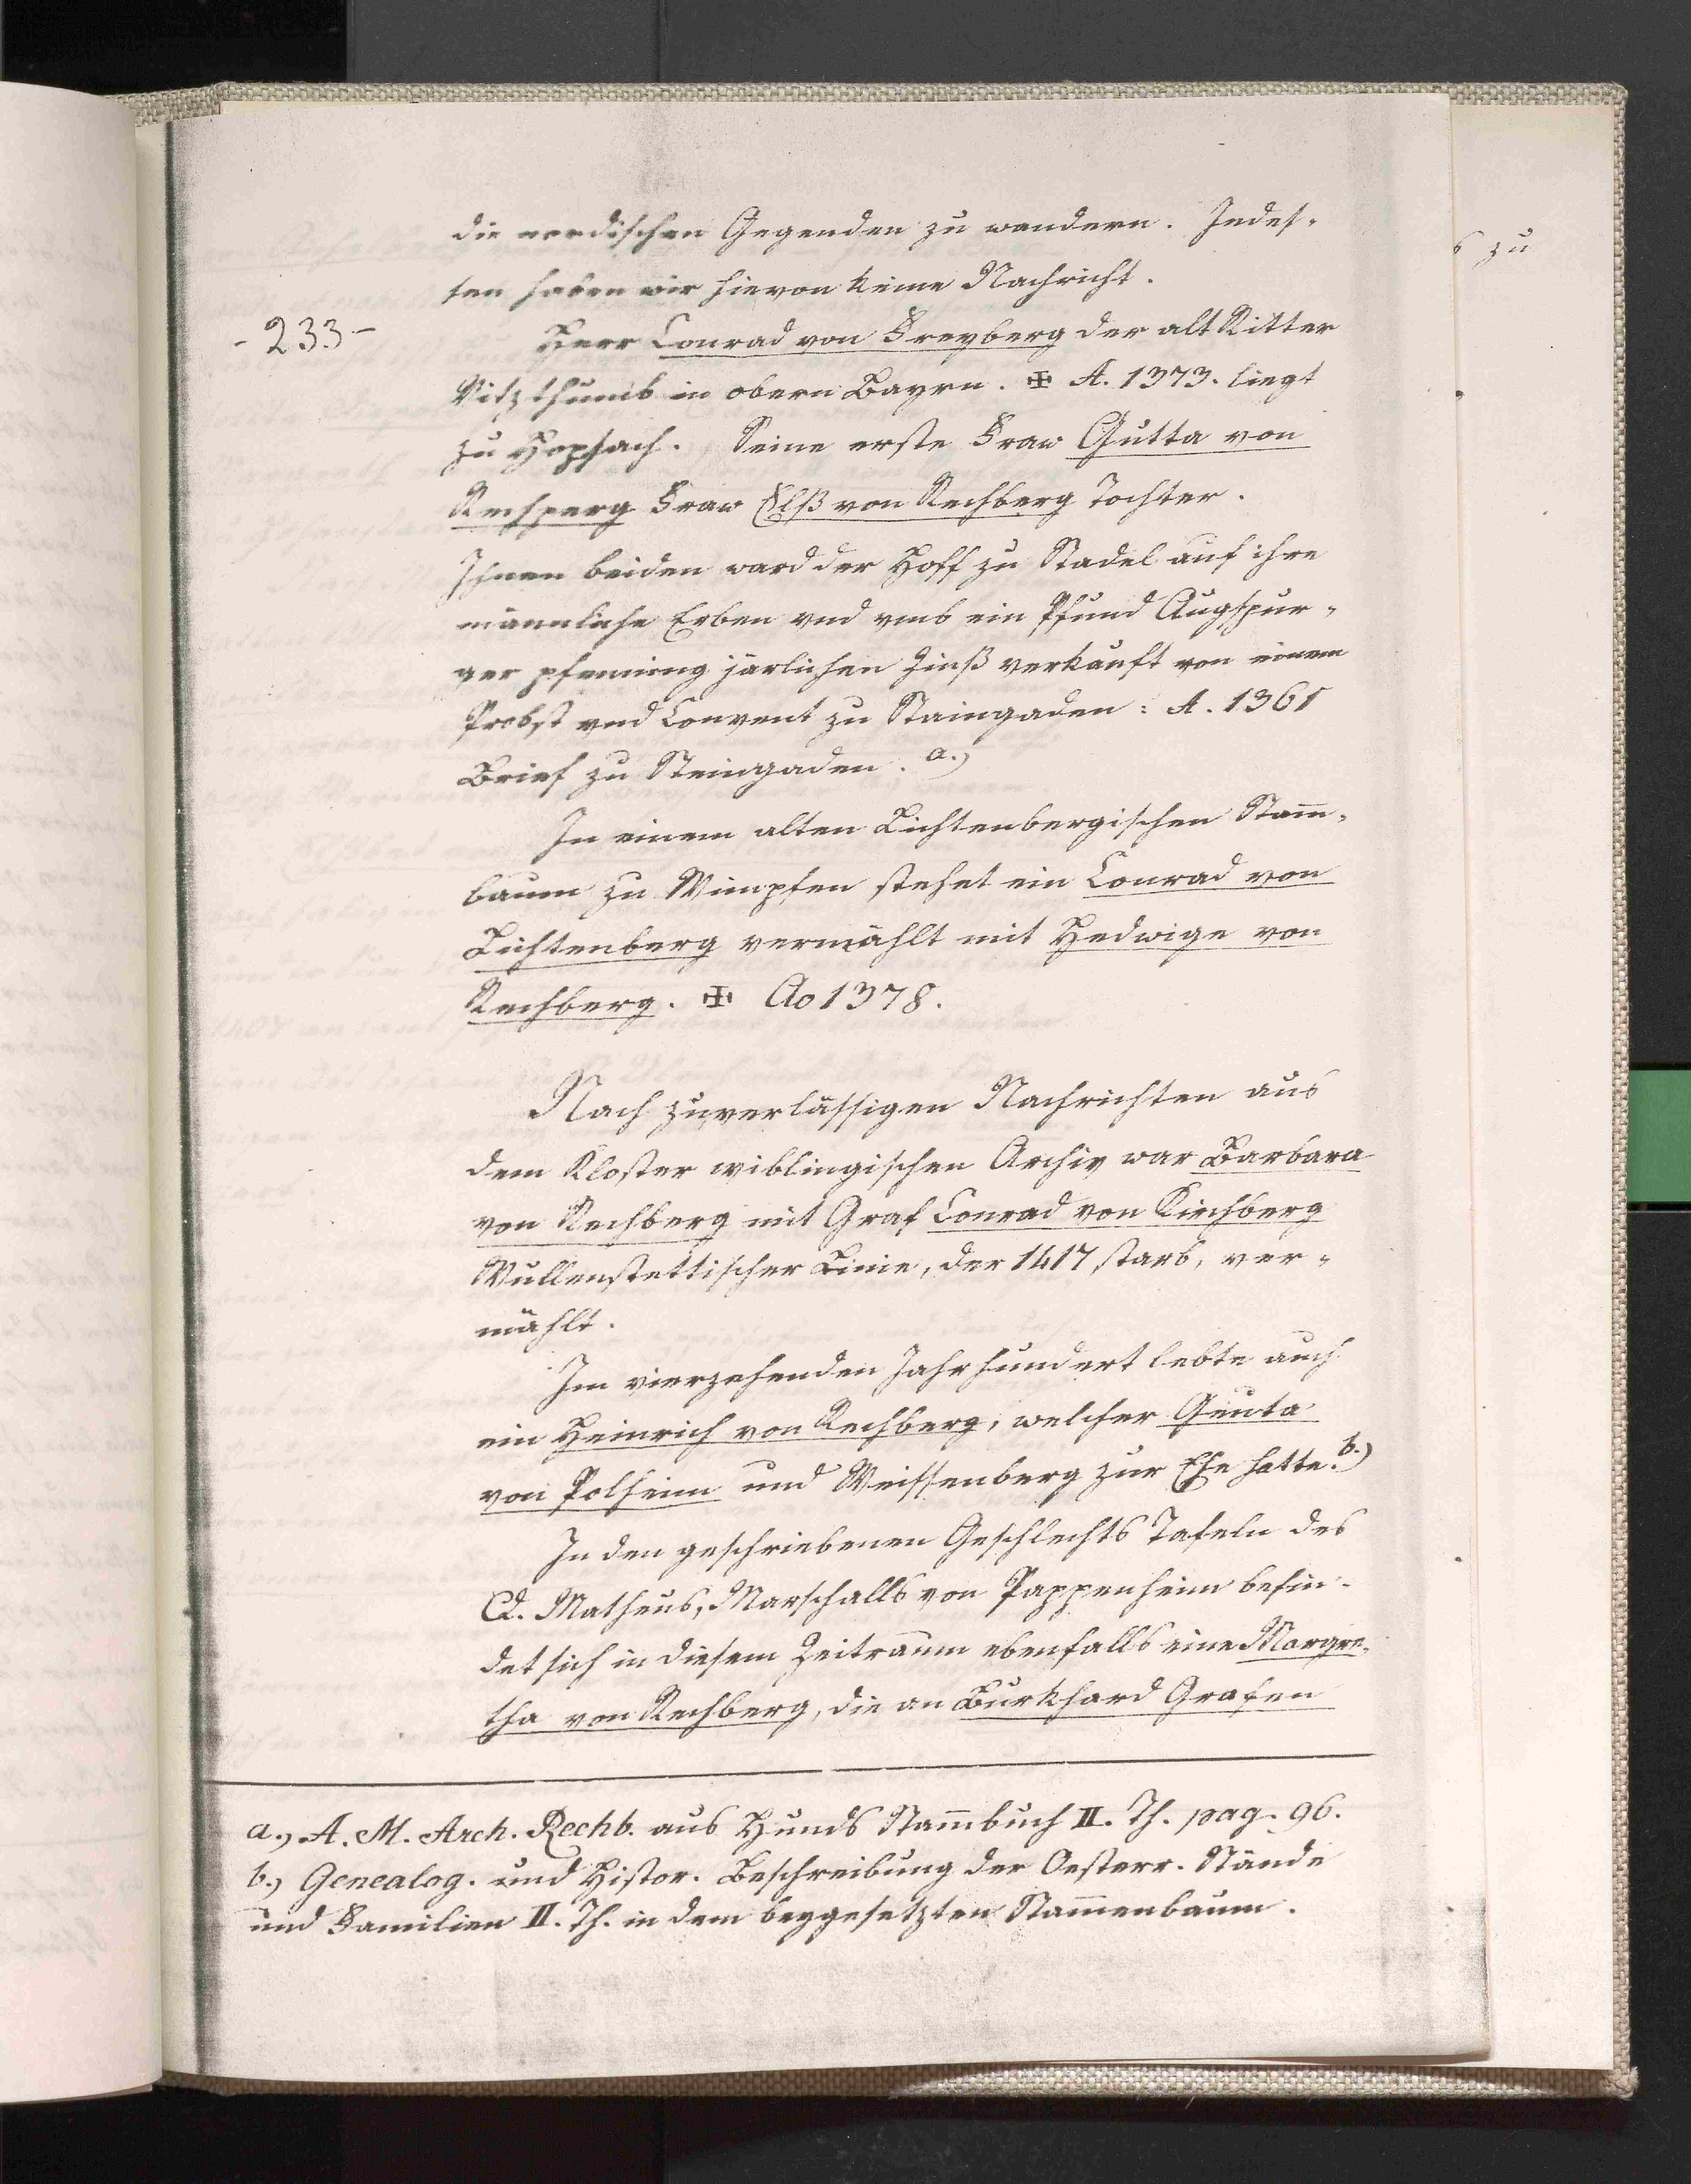 die nordischen Gegenden zu wandern. Indes-
sen haben wir hievon keine Nachricht.
- 233 -
Herr Conrad von Freyberg der alt Ritter
Vitzthumb in obern Bayrn. ✠ A. 1373. liegt
zu Hopfach. Seine erste Fraw Gutta von
Rechperg Fraw Elß von Rechberg Tochter.
Ihnen beiden ward der Hoff zu Stadel auf ihre
männliche Erben vnd vmb ein Pfund Augspur-
ger pfenning järlichen Zinß verkauft von einem
Probst vnd Convent zu Staingaden: A. 1361
Brief zu Steingaden. a.)
In einem alten Lichtenbergischen Stam̄-
baum zu Wimpfen stehet ein Conrad von
Lichtenberg vermählt mit Hedwige von
Rechberg. ✠ Ao 1378.
Nach zuverlässigen Nachrichten aus
dem Kloster wiblingischen Archiv war Barbara
von Rechberg mit Graf Conrad von Kirchberg
Wullenstettischer Linie, der 1417 starb, ver-
mählt.
Im vierzehenden Jahrhundert lebte auch
ein Heinrich von Rechberg, welcher Geuta
von Polheim und Weissenberg zur Ehe hatte. b.)
In den geschriebenen Geschlechts Tafeln des
D. Matheus, Marschalls von Pappenheim befin-
det sich in diesem Zeitraum ebenfalls eine Margre-
tha von Rechberg, die an Burkhard Grafen
a.) A. M. Arch. Rechb. aus Hunds Stam̄buch II. Th. pag. 96.
b.) Genealog. und Histor. Beschreibung der Oesterr. Stände
und Familien II. Th. in dem beygesetzten Stam̄enbaum.
s zu